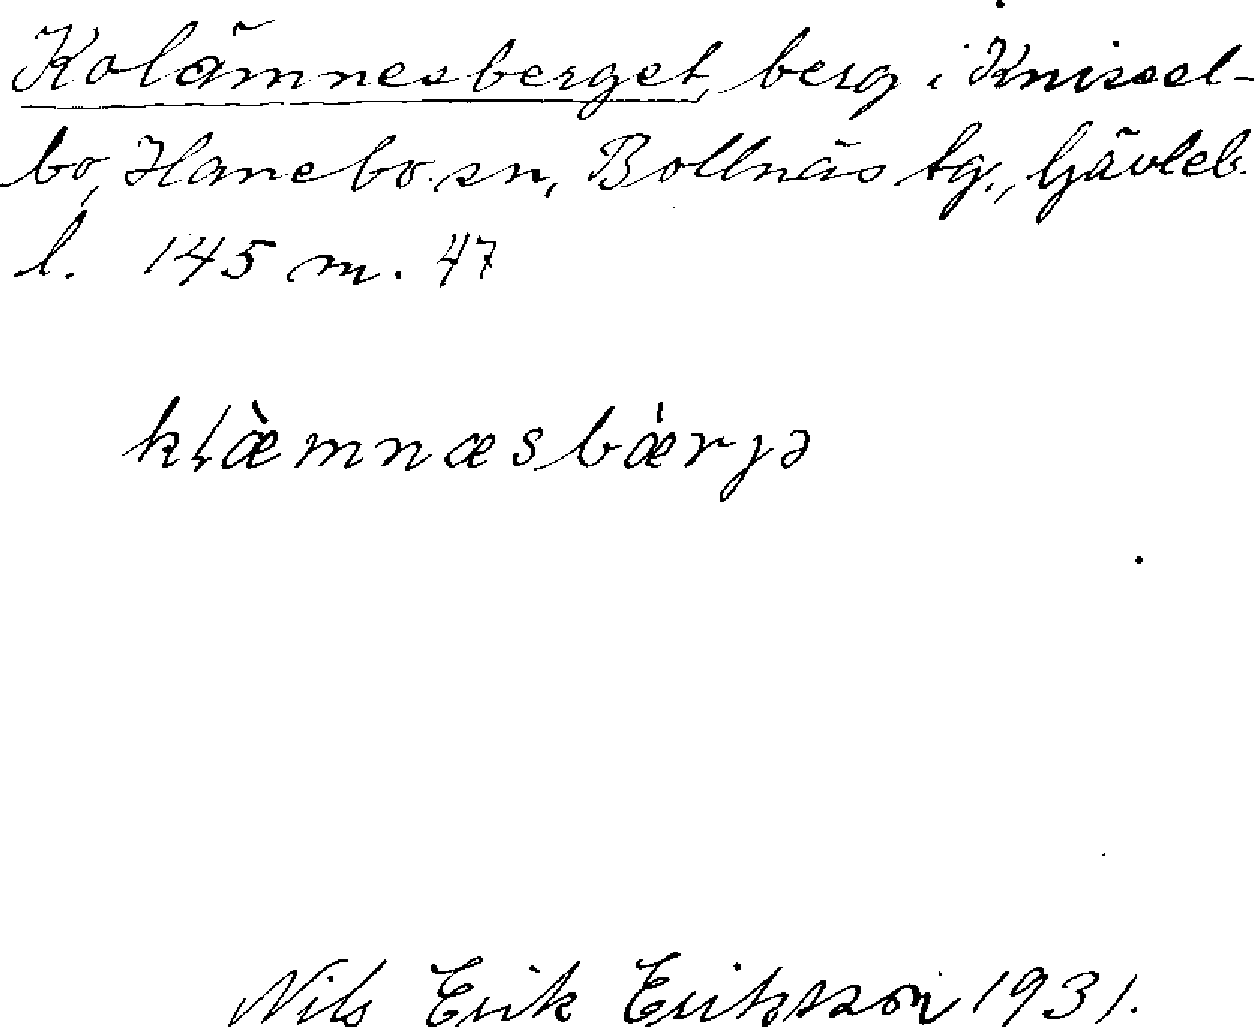 Kolämnesberget, berg i Knissel-
bo, Hanebo sn, Bollnäs tg., Gävleb.
l. 145 m. 47
kl̥æ̀mnæsbǽrjə
Nils Erik Eriksson 1931.